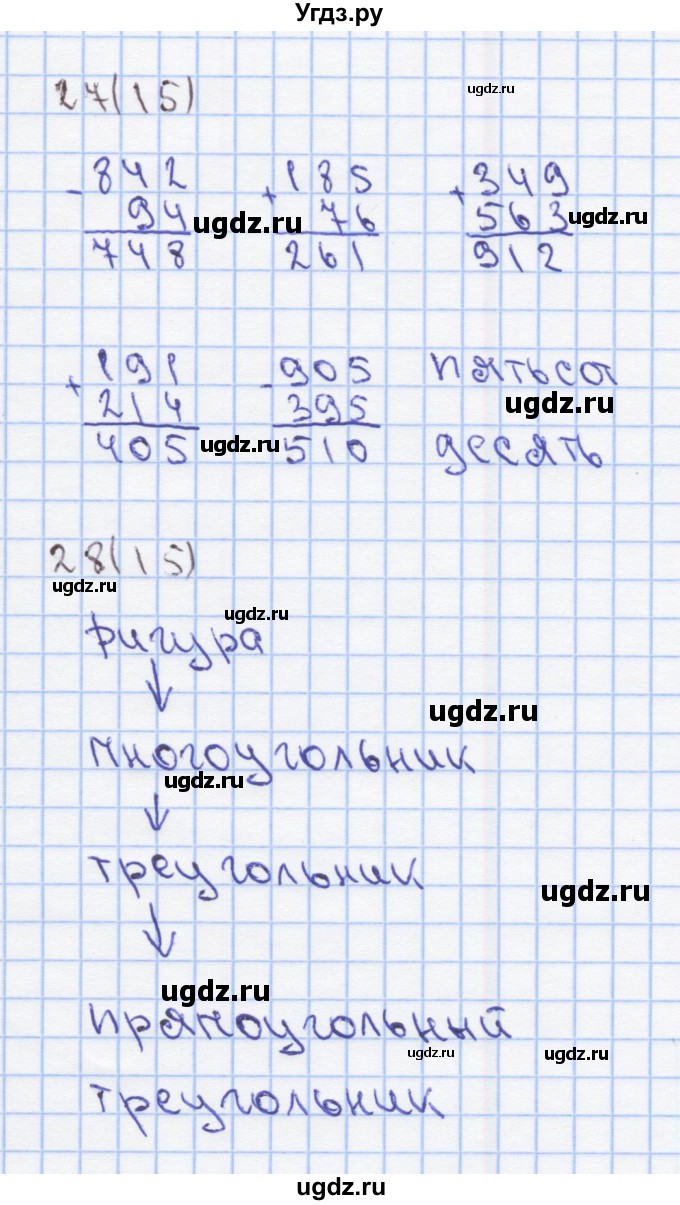 Угдз.ру
27(15)
ugdz.ru
- 842 + 185 + 349
94 76 563
ugdz.ru ugdz.ru
748 261 912
+ 191 - 905 пятьсот
214 395 ugdz.ru
405 ugdz.ru 510 десять
28(15)
ugdz.ru
ugdz.ru
фигура
↓
ugdz.ru
многоугольник
ugdz.ru
↓
треугольник
ugdz.ru
↓
ugdz.ru
прямоугольный
ugdz.ru ugdz.ru
треугольник
ugdz.ru